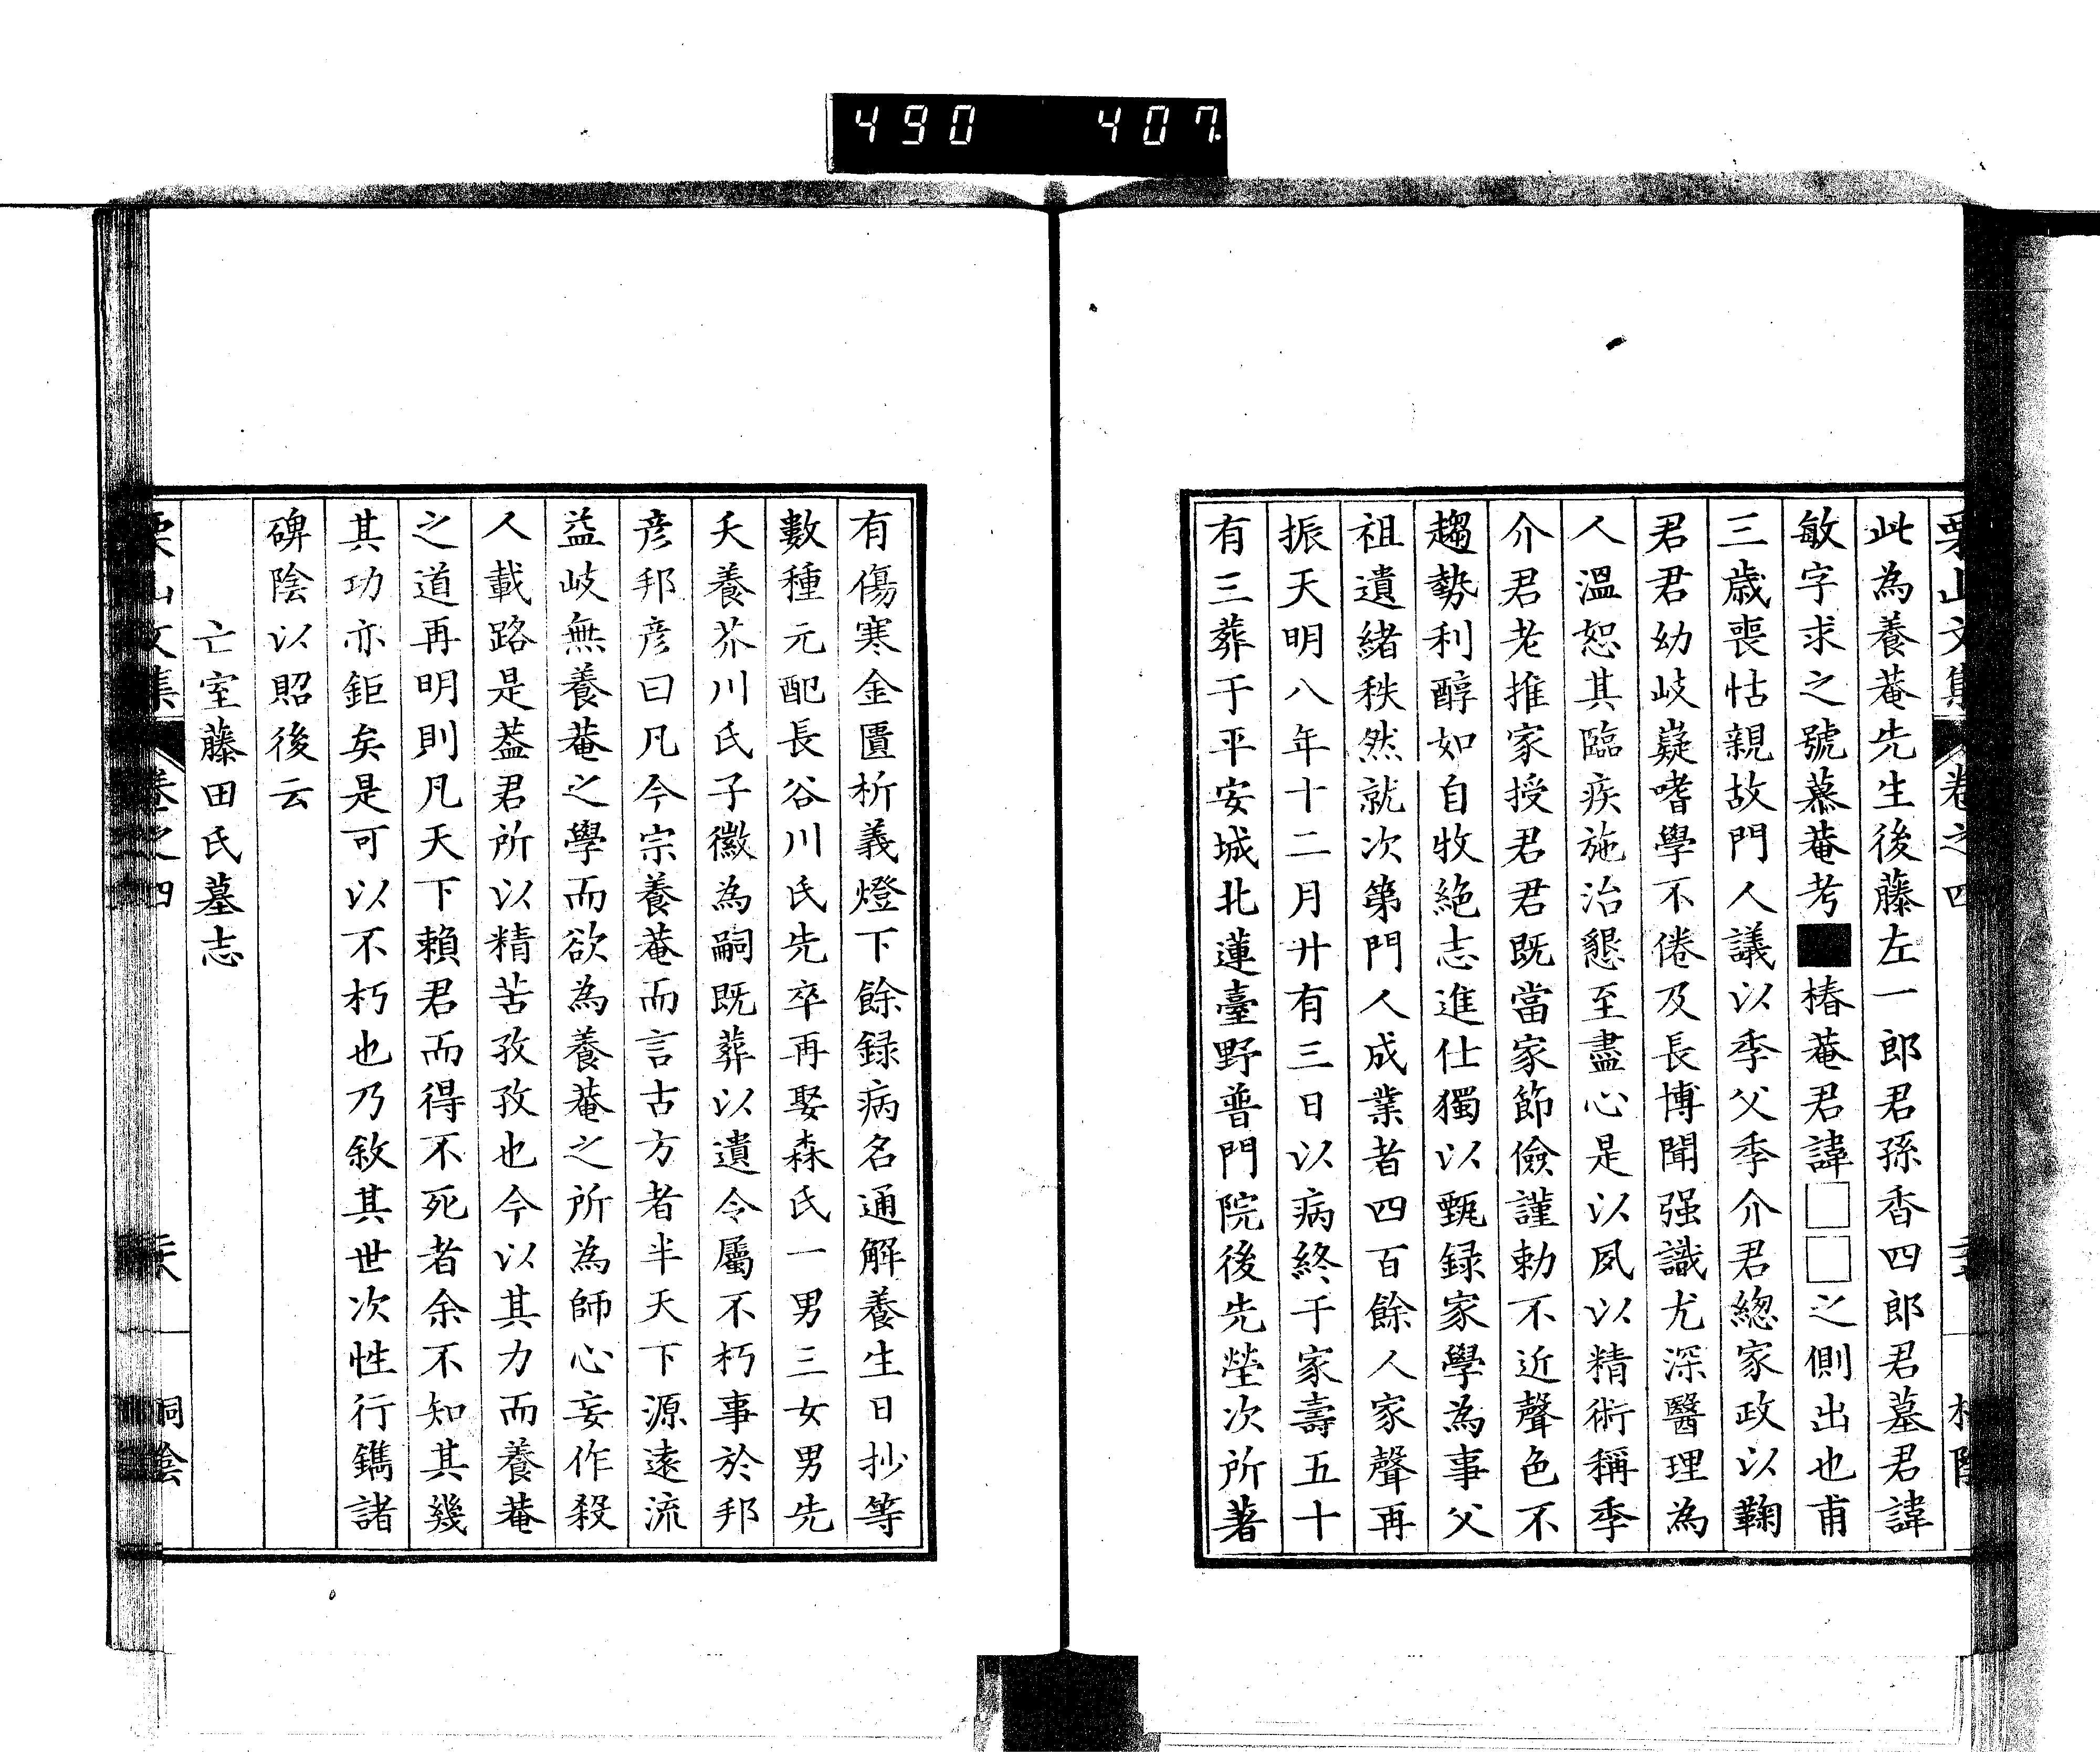 490 407.
栗山文集 卷之四
此為養菴先生後藤左一郎君孫香四郎君墓君諱
敏字求之號慕菴考■椿菴君諱□□之側出也甫
三歳喪怙親故門人議以季父季介君總家政以鞠
君君幼岐嶷嗜學不倦及長博聞强識尤深醫理為
人溫恕其臨疾施治懇至盡心是以夙以精術稱季
介君老推家授君君既當家節儉謹勅不近聲色不
趨勢利醇如自牧絶志進仕獨以甄録家學為事父
祖遺緒秩然就次第門人成業者四百餘人家聲再
振天明八年十二月廾有三日以病終于家壽五十
有三葬于平安城北蓮臺野普門院後先塋次所著
有傷寒金匱析義燈下餘録病名通解養生日抄等
數種元配長谷川氏先卒再娶森氏一男三女男先
夭養芥川氏子徽為嗣既葬以遺令屬不朽事於邦
彦邦彦曰凡今宗養菴而言古方者半天下源遠流
益岐無養菴之學而欲為養菴之所為師心妄作殺
人載路是葢君所以精苦孜孜也今以其力而養菴
之道再明則凡天下賴君而得不死者余不知其幾
其功亦鉅矣是可以不朽也乃敘其世次性行鐫諸
碑陰以貽後云
亡室藤田氏墓志
栗山文集 卷之四 桐陰